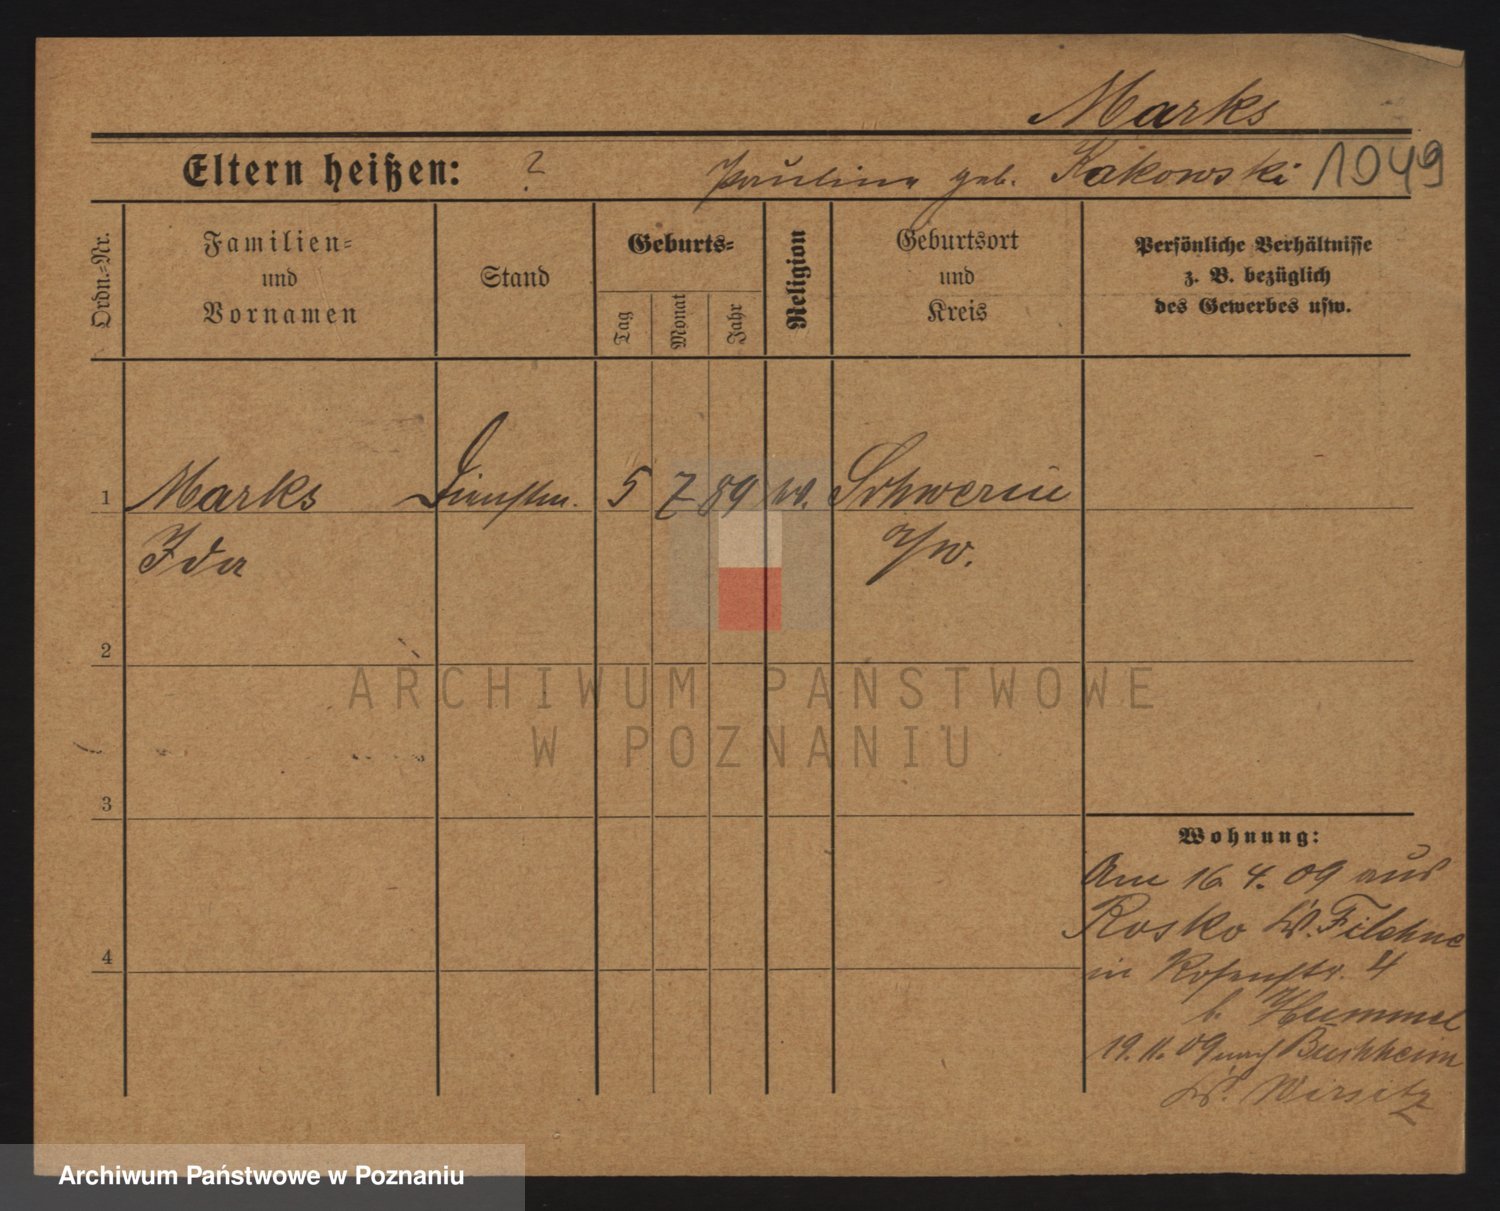 Marks
Eltern heißen: ? Pauline geb. Kakowski 1049
Ordn.-Nr.
Familien-
und
Vornamen
Stand
Geburts-
Tag
Monat
Jahr
Religion
Geburtsort
und
Kreis
Persönliche Verhältnisse
z. B. bezüglich
des Gewerbes usw.
1 Marks Dienstm. 5 7 89 Schwerin
Ida a/W.
2
ARCHIWUM PAŃSTWOWE
W POZNANIU
3
Wohnung:
Am 16 4. 09 aus
Rosko Kr. Filehne
4
in Rosenstr. 4
b. Hummel
19. 11. 09 nach Buchheim
Kr. Wirsitz
Archiwum Państwowe w Poznaniu